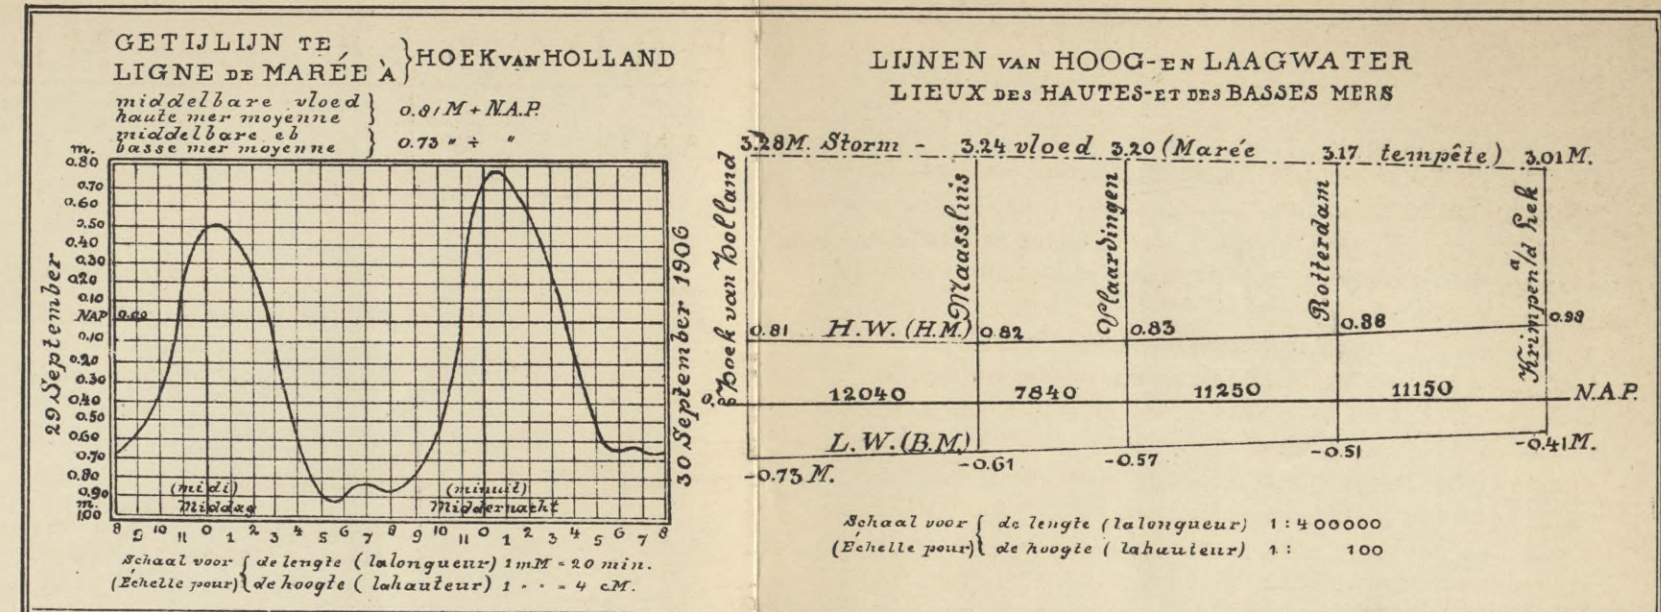 GETIJLIJN TE
LIGNE DE MARÉE À } HOEK VAN HOLLAND
middelbare vloed
haute mer moyenne } 0.81 M + N.A.P.
middelbare eb
basse mer moyenne } 0.73 " ÷ "
m.
0.80
0.70
0.60
0.50
0.40
0.30
0.20
0.10
NAP 0.00
0.10
0.20
0.30
0.40
0.50
0.60
0.70
0.80
0.90
m.
1.00
29 September
30 September 1906
(midi)
Middag
(minuit)
Middernacht
8 9 10 11 0 1 2 3 4 5 6 7 8 9 10 11 0 1 2 3 4 5 6 7 8
Schaal voor { de lengte (lalongueur) 1 mM = 20 min.
(Échelle pour) { de hoogte (lahauteur) 1 " " = 4 cM.
LIJNEN VAN HOOG-EN LAAGWATER
LIEUX DES HAUTES-ET DES BASSES MERS
3.28M. Storm - 3.24 vloed 3.20 (Marée 3.17 tempête) 3.01 M.
Hoek van Holland
Maassluis
Vlaardingen
Rotterdam
Krimpen a/d Lek
0.81 H.W. (H.M.) 0.82 0.83 0.88 0.99
12040 7840 11250 11150 N.A.P.
L.W. (B.M.)
-0.73 M. -0.61 -0.57 -0.51 -0.41 M.
Schaal voor { de lengte (lalongueur) 1:400000
(Échelle pour) { de hoogte (lahauteur) 1: 100